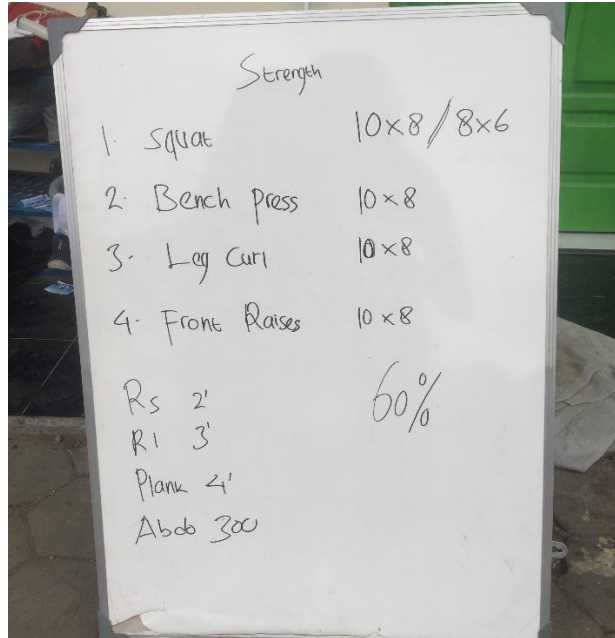 Strength
1. Squat 10x8 / 8x6
2. Bench press 10x8
3. Leg Curl 10x8
4. Front Raises 10x8
Rs 2' 60%
Rl 3'
Plank 4'
Abdo 300